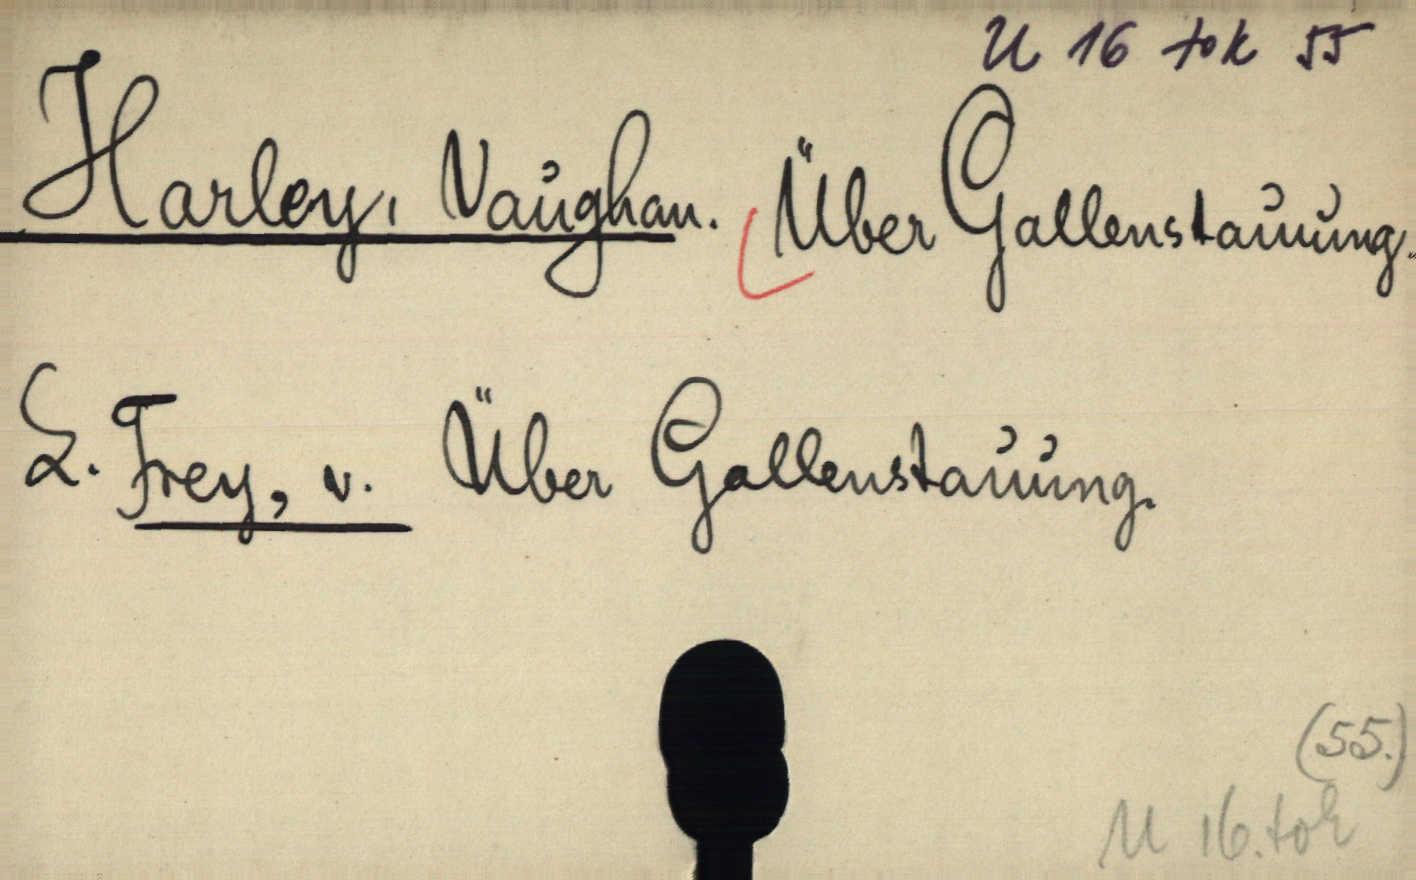 U 16 tok 55
Harley, Vaughan. Über Gallenstauung.
L. Frey, v. Über Gallenstauung.
(55.)
U 16. tok